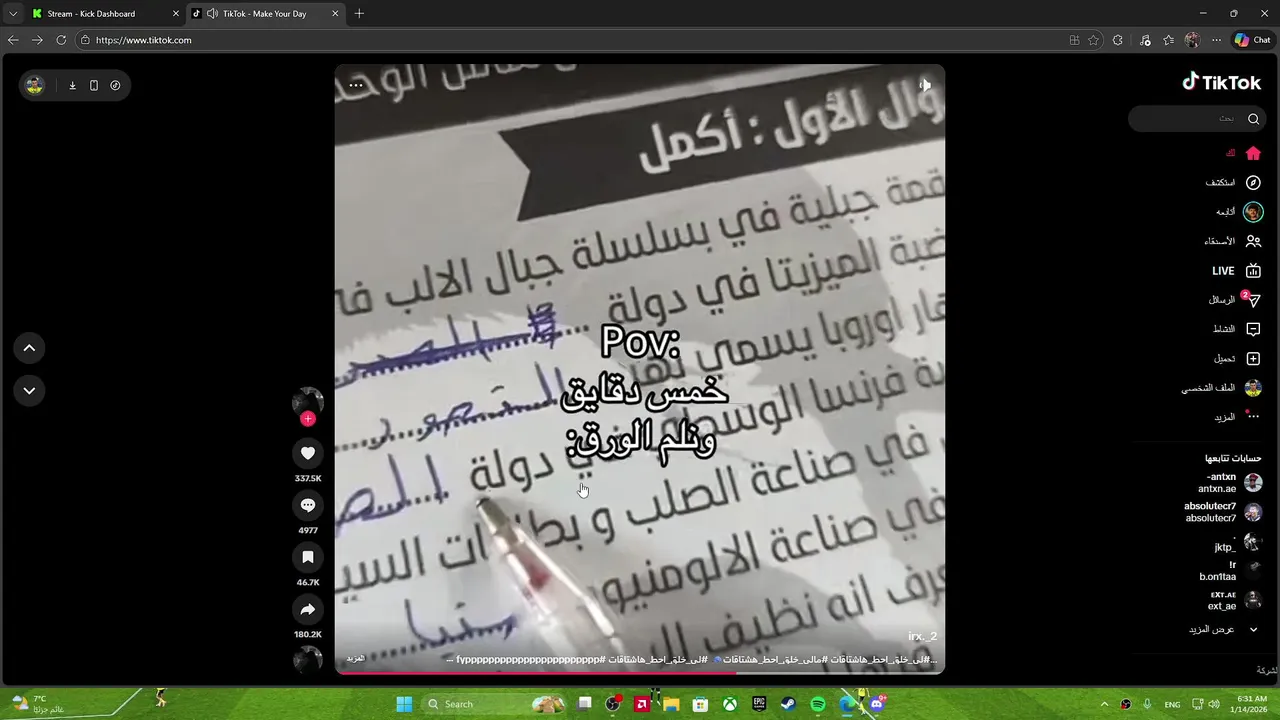 Stream - Kick Dashboard
TikTok - Make Your Day
https://www.tiktok.com
Chat
TikTok
بحث
لك
استكشف
أتابعه
الأصدقاء
LIVE
الرسائل
2
النشاط
تحميل
الملف الشخصي
المزيد
حسابات تتابعها
-antxn
antxn.ae
absolutecr7
absolutecr7
jktp_
!r
b.on1taa
ᴇxᴛ.ᴀᴇ
ext_ae
عرض المزيد
ؤال الأول : أكمل
قمة جبلية في بسلسلة جبال الالب في
ضبة الميزيتا في دولة
هار اوروبا يسمي نهر
ة فرنسا الوسطى في دولة
في صناعة الصلب و بطاريات السي
في صناعة الالومنيو
رف انه نظيف
Pov:
خمس دقايق
ونلم الورق:
337.5K
4977
46.7K
180.2K
irx._2
...#لي_خلق_احط_هاشتاقات #مالي_خلق_احط_هشتاقات #لي_خلق_احط_هاشتاقات #fyppppppppppppppppppppppp ...
المزيد
7°C
غائم جزئيًا
Search
ENG
6:31 AM
1/14/2026